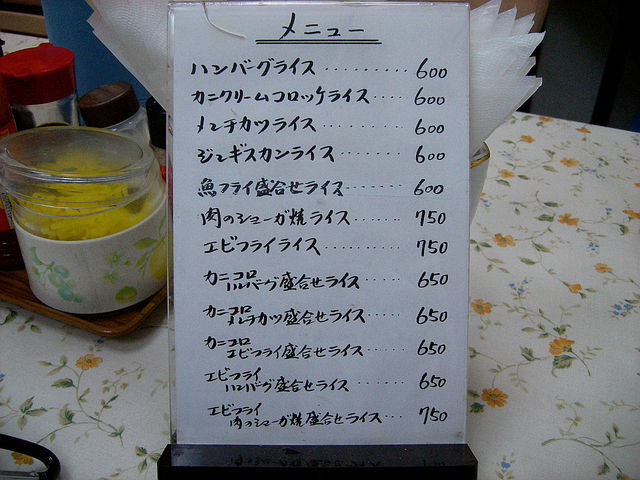 メニュー
ハンバーグライス ......... 600
カニクリームコロッケライス .... 600
メンチカツライス ......... 600
ジンギスカンライス ....... 600
魚フライ盛合せライス ...... 600
肉のシューガ焼ライス ...... 750
エビフライライス ........ 750
カニコロ
ハンバーグ盛合せライス ..... 650
カニコロ
メンチカツ盛合せライス .... 650
カニコロ
エビフライ盛合せライス .... 650
エビフライ
ハンバーグ盛合せライス .... 650
エビフライ
肉のシューガ焼盛合せライス ... 750